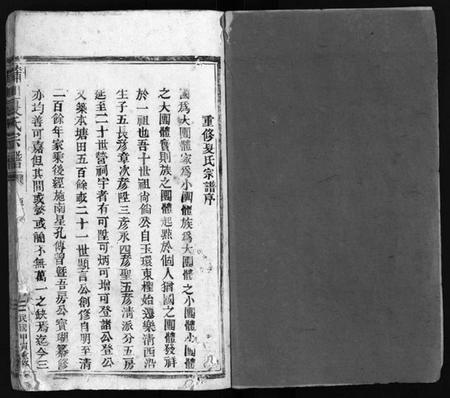 重修夏氏宗譜序
國爲大團體家爲小團體族爲大團體之小團體小團體
之大團體實則族之團體起點於個人猶國之團體發祥
於一祖也吾十世祖尚綸公自玉環東楗始遷樂清西沿
生子五長彥章次彥陞三彥永四彥聖五彥清派分五房
延至二十世營祠宇者有可陞可炳可增可登諸公登公
又築本塘田五百餘畝二十一世題言公創修自明至清
二百餘年家乘後經施南星孔傳曾暨吾房公實瑚纂修
亦均善可嘉但其間或繁或誦不無萬一之缺焉迄今三
蒲川夏氏宗譜
序
民國甲